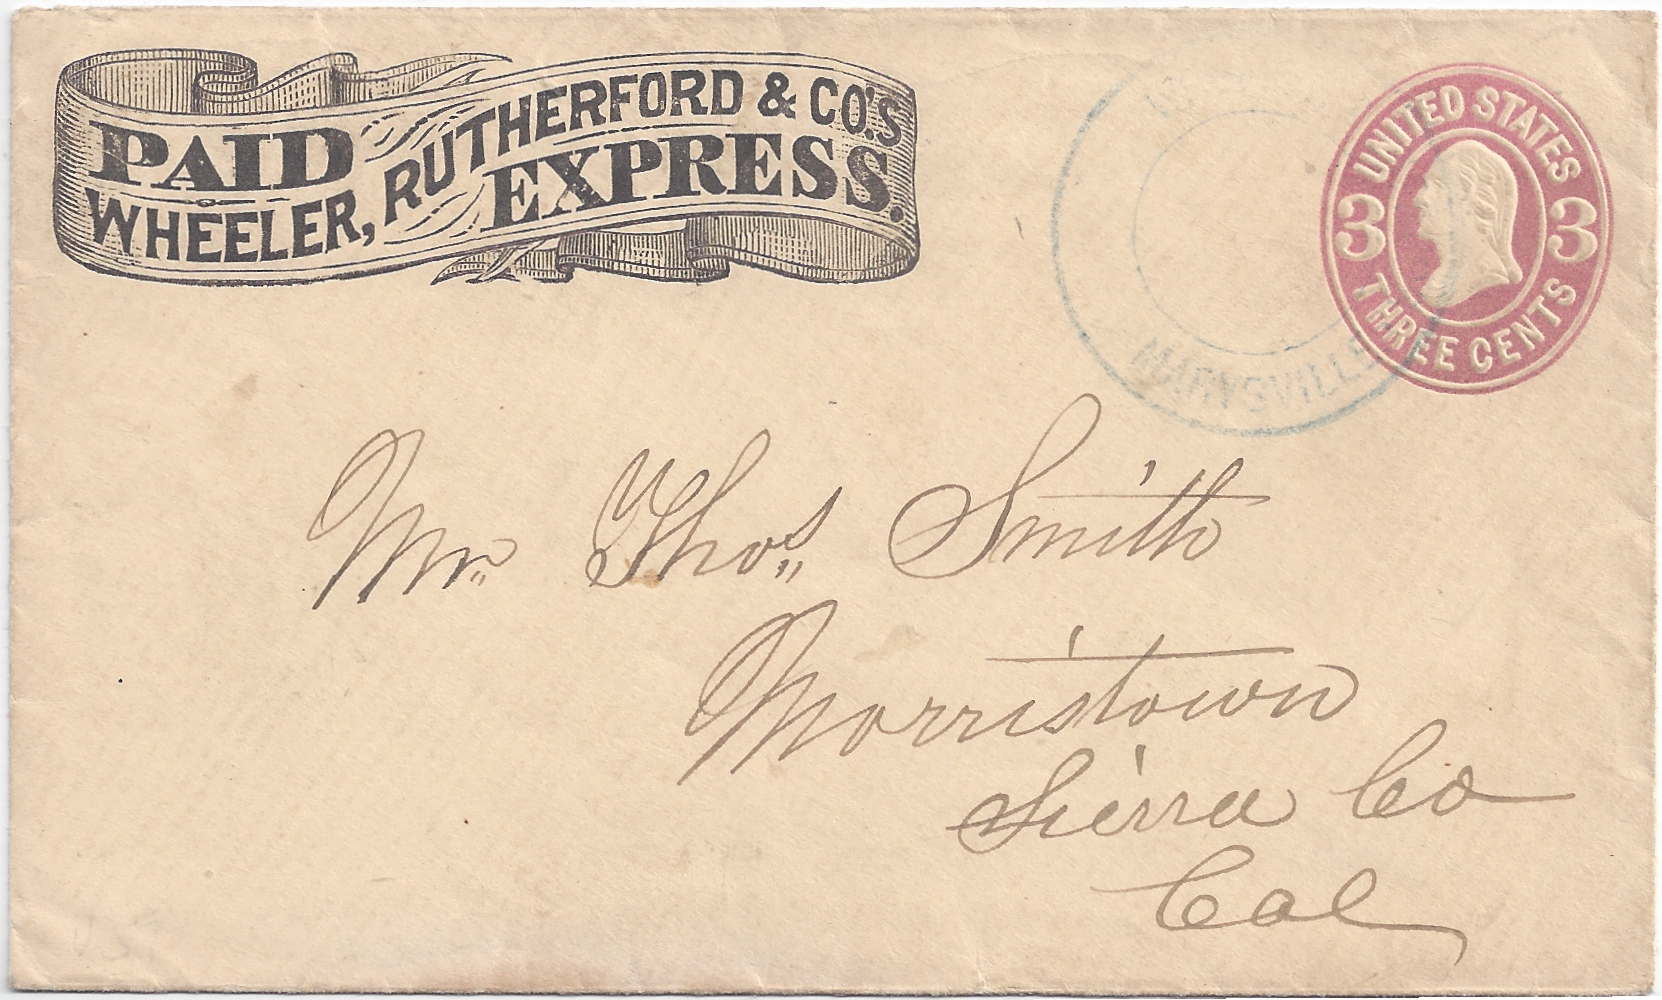 PAID
WHEELER, RUTHERFORD & CO'S.
EXPRESS.
UNITED STATES
3 3
THREE CENTS
MARYSVILLE
Mr. Thos. Smith
Morristown
Sierra Co
Cal